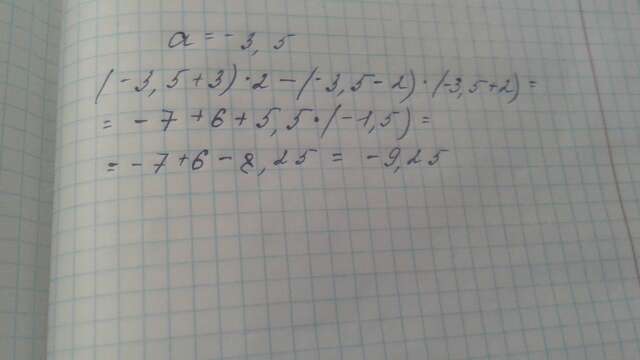 a = -3,5
(-3,5+3)·2-(-3,5-2)·(-3,5+2)=
= -7+6+5,5·(-1,5)=
= -7+6-8,25 = -9,25